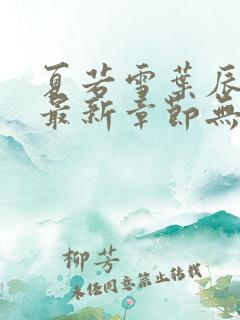 夏若雪葉辰
最新章節無
柳芳
未经同意禁止转载